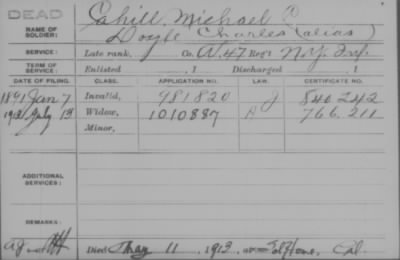 DEAD
NAME OF SOLDIER: Cahill, Michael C.
Doyle Charles (alias)
SERVICE: Late rank, Co. A, 47 Reg't N.Y. Inf.
TERM OF SERVICE: Enlisted , 1 Discharged , 1
DATE OF FILING. CLASS. APPLICATION NO. LAW. CERTIFICATE NO.
1891 Jan 7 Invalid, 981820 J 540242
1913 July 13 Widow, 1010887 A 766211
Minor,
ADDITIONAL SERVICES:
REMARKS:
Died May 11, 1913, at Home, Cal.